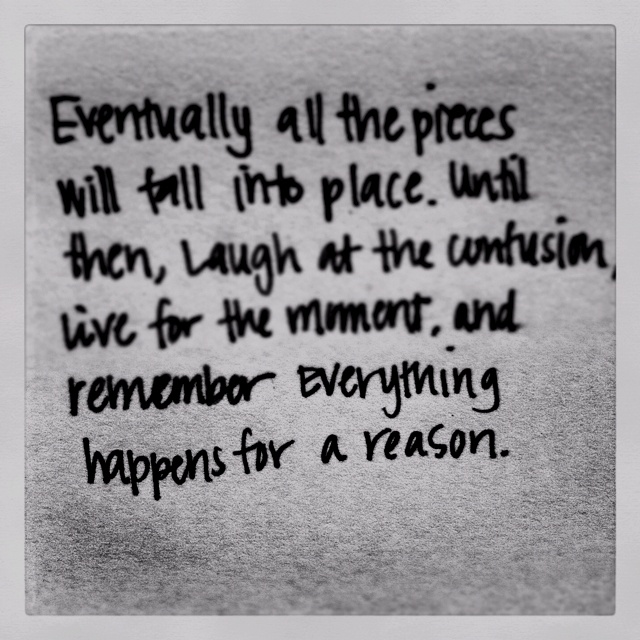 Eventually all the pieces
will fall into place. Until
then, Laugh at the confusion,
live for the moment, and
remember Everything
happens for a reason.